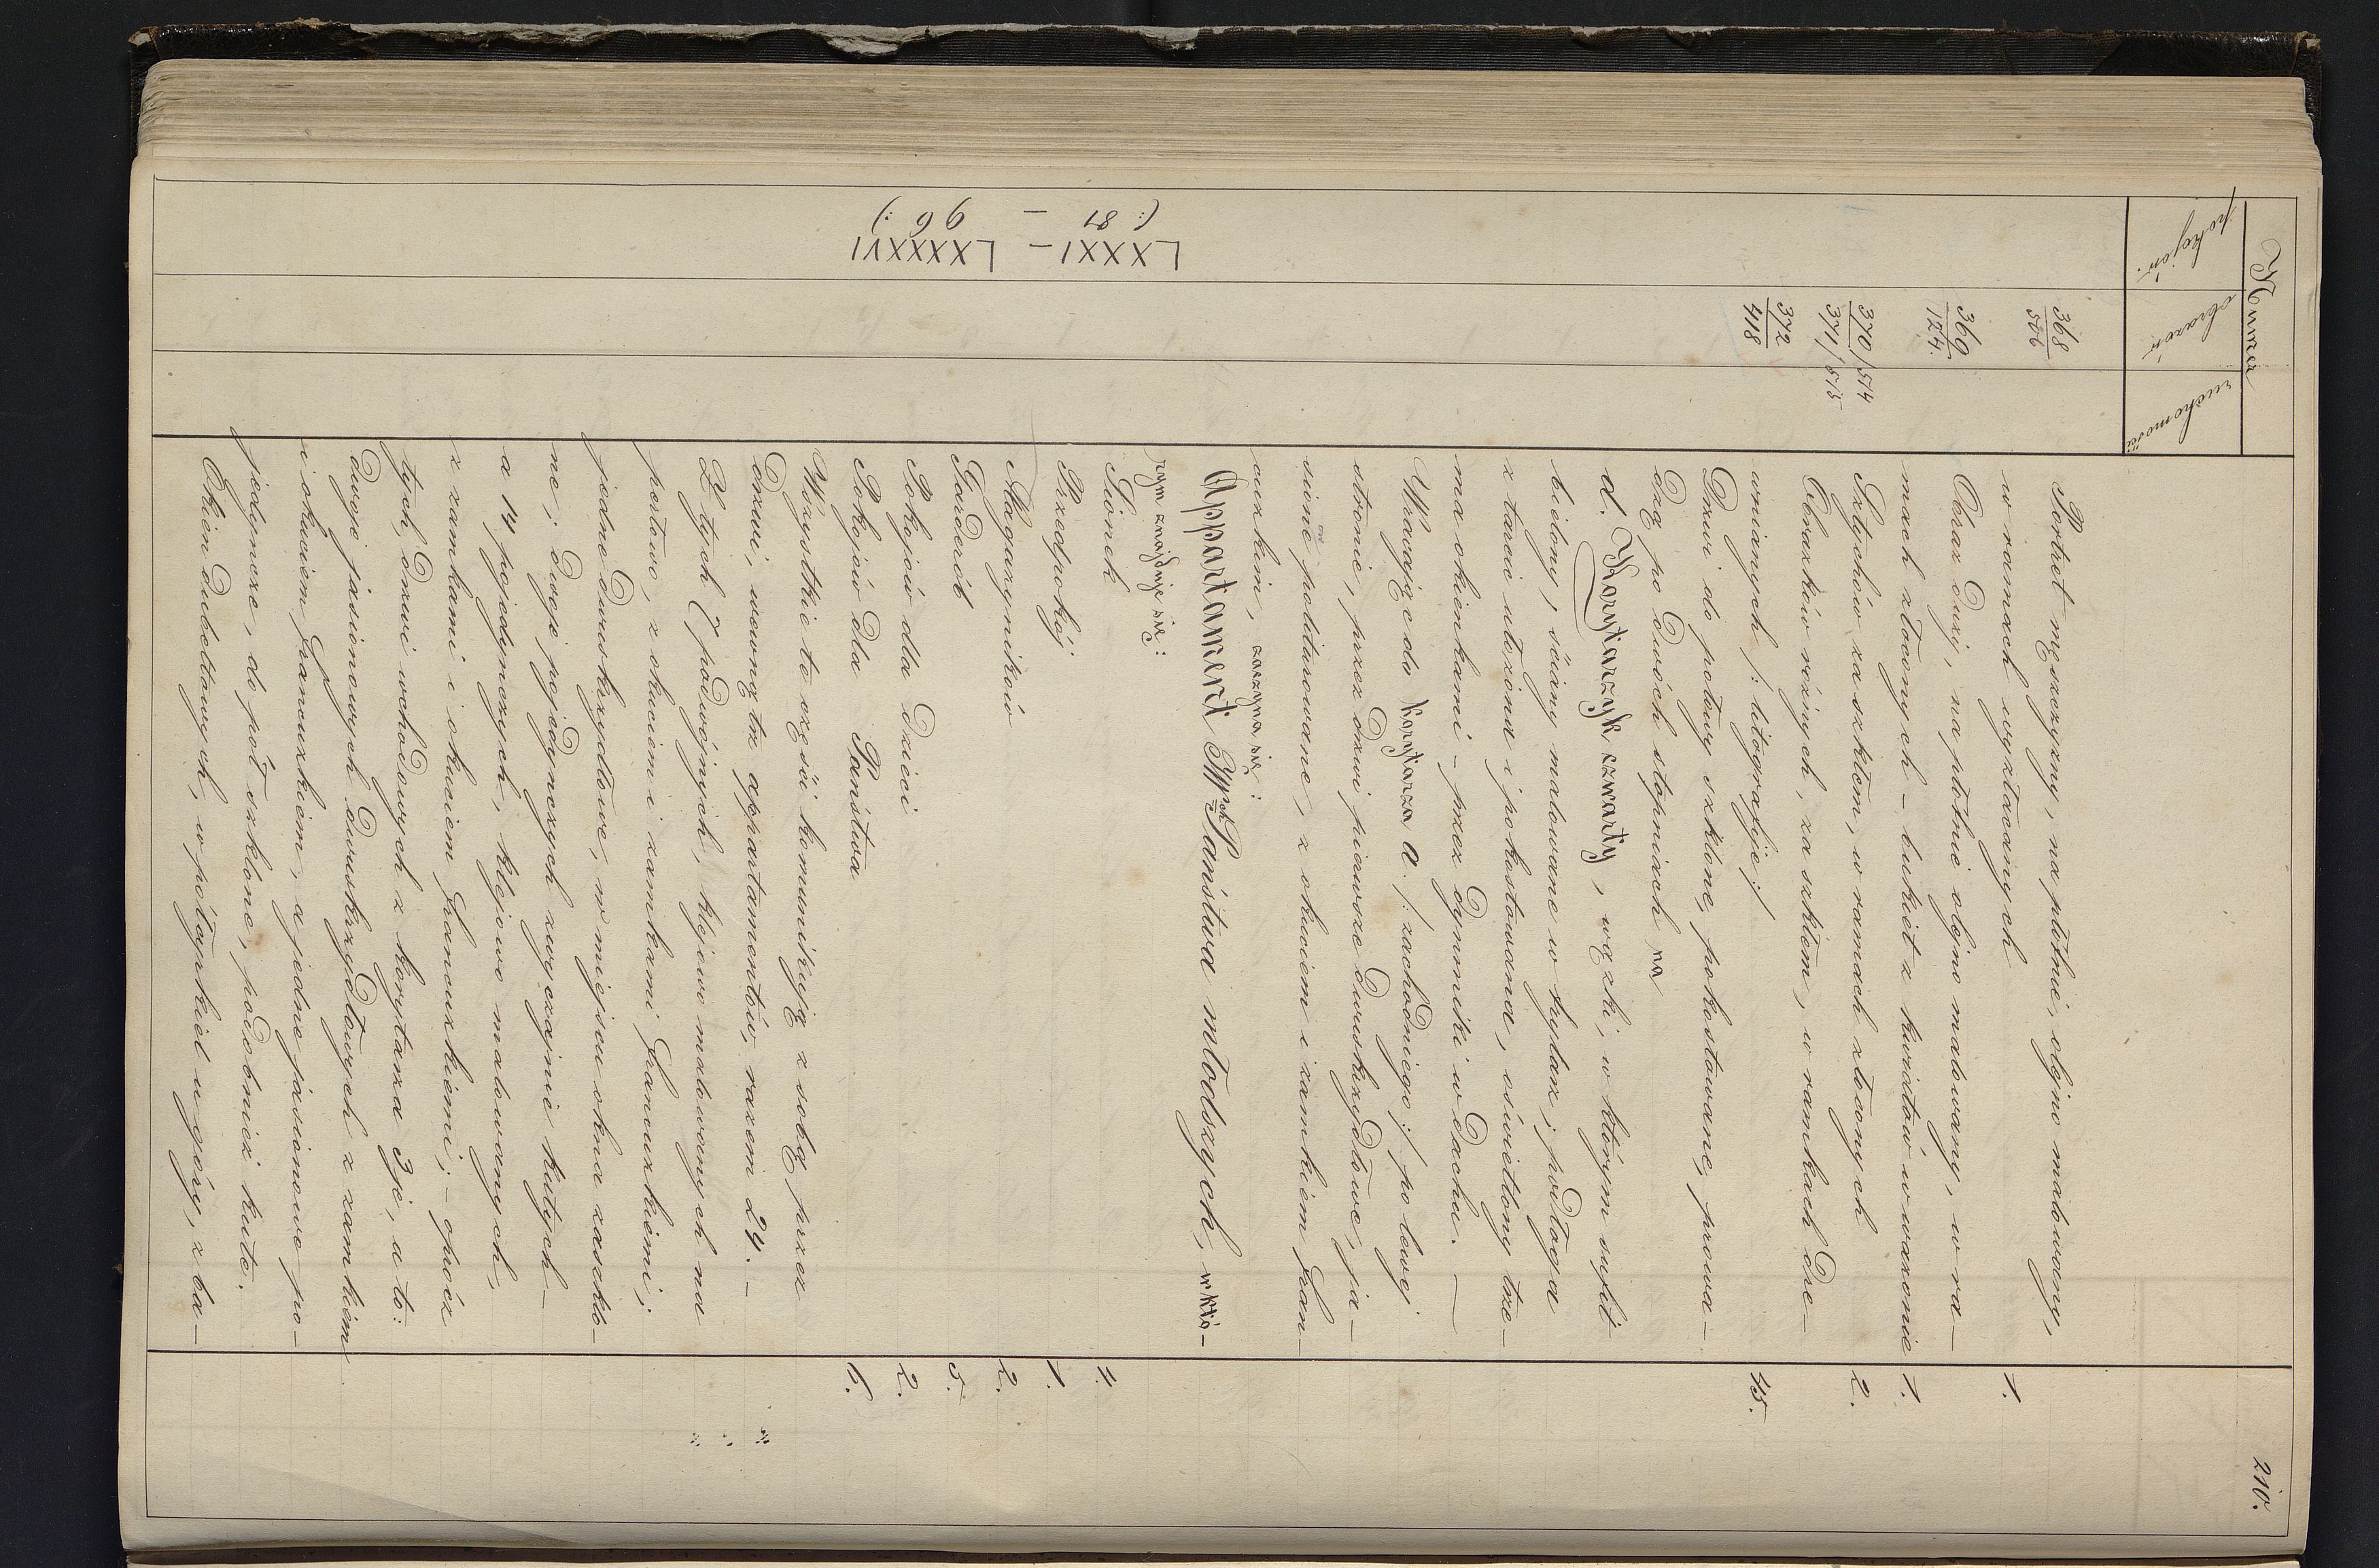 210.
Numera
pokojów.
obrazów
ruchomości
368
506
Portret męszczyzny, na płótnie, olejno malowany,
w ramach wyzłacanych 1.
369
174.
Obraz duży, na płótnie olejno malowany, w ra-
mach złoconych – bukiet z kwiatów w wazonie 1.
370/514
371/515
Sztychów za szkłem, w ramach złoconych 2.
372
418
Obrazków różnych, za szkłem, w ramkach dre-
wnianych /: litografije :/ 45.
Drzwi do połowy szklone, pokostowane, prowa-
dzą po dwóch stopniach na
d. Korytarzyk czwarty, wązki, w którym sufit
bielony, ściany malowane w trylaż; podłoga
z tarcic ułożona i pokostowana, oświetlony trze-
ma okienkami – przez dymniki w dachu. —
Wracając do korytarza a. /: zachodniego :/ po lewej
stronie, przez drzwi pierwsze dwuskrzydłowe, ja-
sionowe politurowane, z okuciem i zamkiem fran-
cuzkim, zaczyna się:
Appartament JWnych Państwa młodszych, w któ-
rym znajduje się:
Sionek 4.
Przedpokój 1.
Magazyników 2.
Garderób 5.
Pokojów dla dzieci 2.
Pokojów dla Państwa 6.
LXXXI – LXXXXVI
(: 81 – 96 :)
Wszystkie te części komunikują z sobą przez
drzwi, wewnątrz appartamentów, razem 24. –
Z tych 7 podwójnych, klejowo malowanych na
perłowo, z okuciem i zamkami francuzkiemi;
jedne dwuskrzydłowe, w miejscu okna zaszklo-
ne; dwoje pojedynczych zwyczajnie kutych –
a 14 pojedynczych, klejowo malowanych,
z zamkami i okuciem francuzkiemi; – oprócz
tych, drzwi wchodowych z korytarza 3je, a to:
dwoje jasionowych dwuskrzydłowych z zamkiem
i okuciem francuzkiem, a jedne jasionowe po-
jedyncze, do pół szklone, podobnież kute.
Okien dubeltowych, w półcyrkiel u góry, z ba-